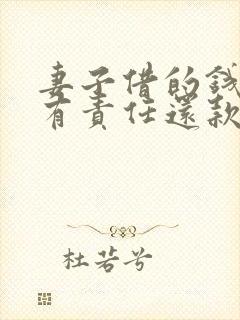 妻子借的錢
有責任還款
杜若兮